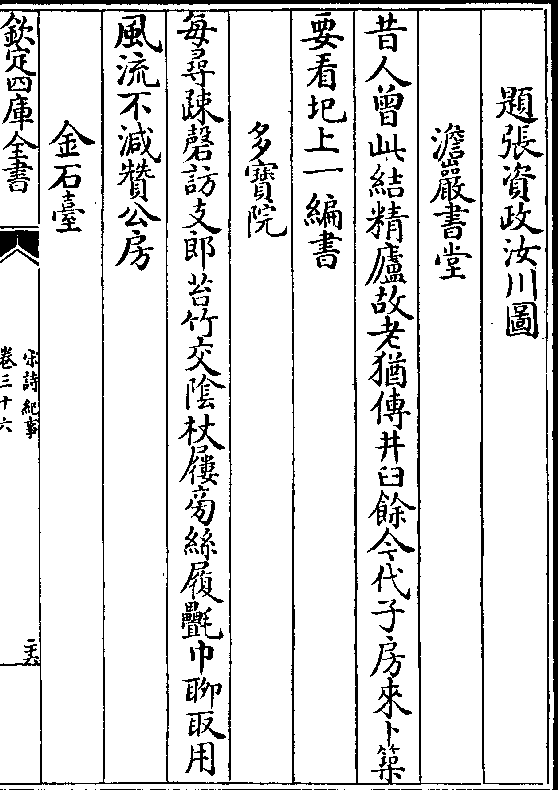 題張資政汝川圖
澹巖書堂
昔人曾此結精廬故老猶傳井臼餘今代子房來卜築
要看圯上一編書
多寶院
每尋疎磬訪支郎苔竹交陰杖屨旁絲履氎巾聊取用
風流不減贊公房
金石臺
欽定四庫全書
宋詩紀事
卷三十六